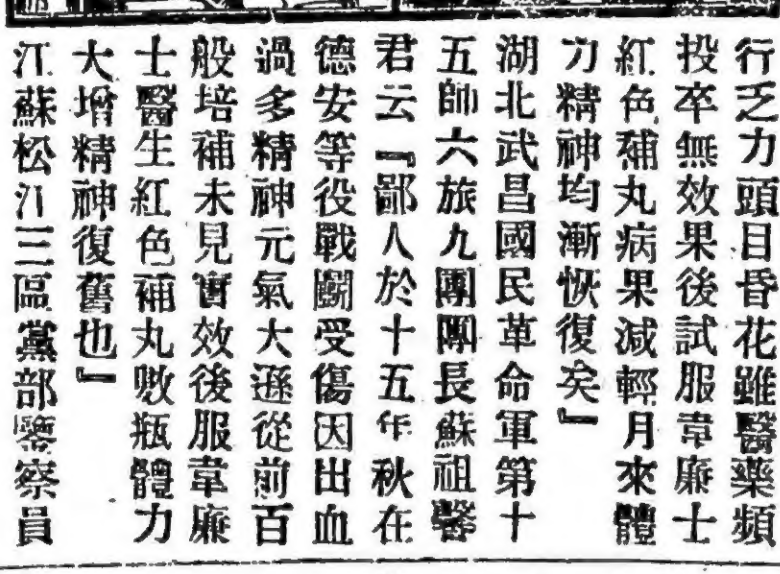 行乏力頭目昏花雖醫藥頻
投卒無效果後試服韋廉士
紅色補丸病果減輕月來體
力精神均漸恢復矣』
湖北武昌國民革命軍第十
五師六旅九團團長蘇祖馨
君云『鄙人於十五年秋在
德安等役戰鬭受傷因出血
過多精神元氣大遜從前百
般培補未見實效後服韋廉
士醫生紅色補丸數瓶體力
大增精神復舊也』
江蘇松江三區黨部監察員